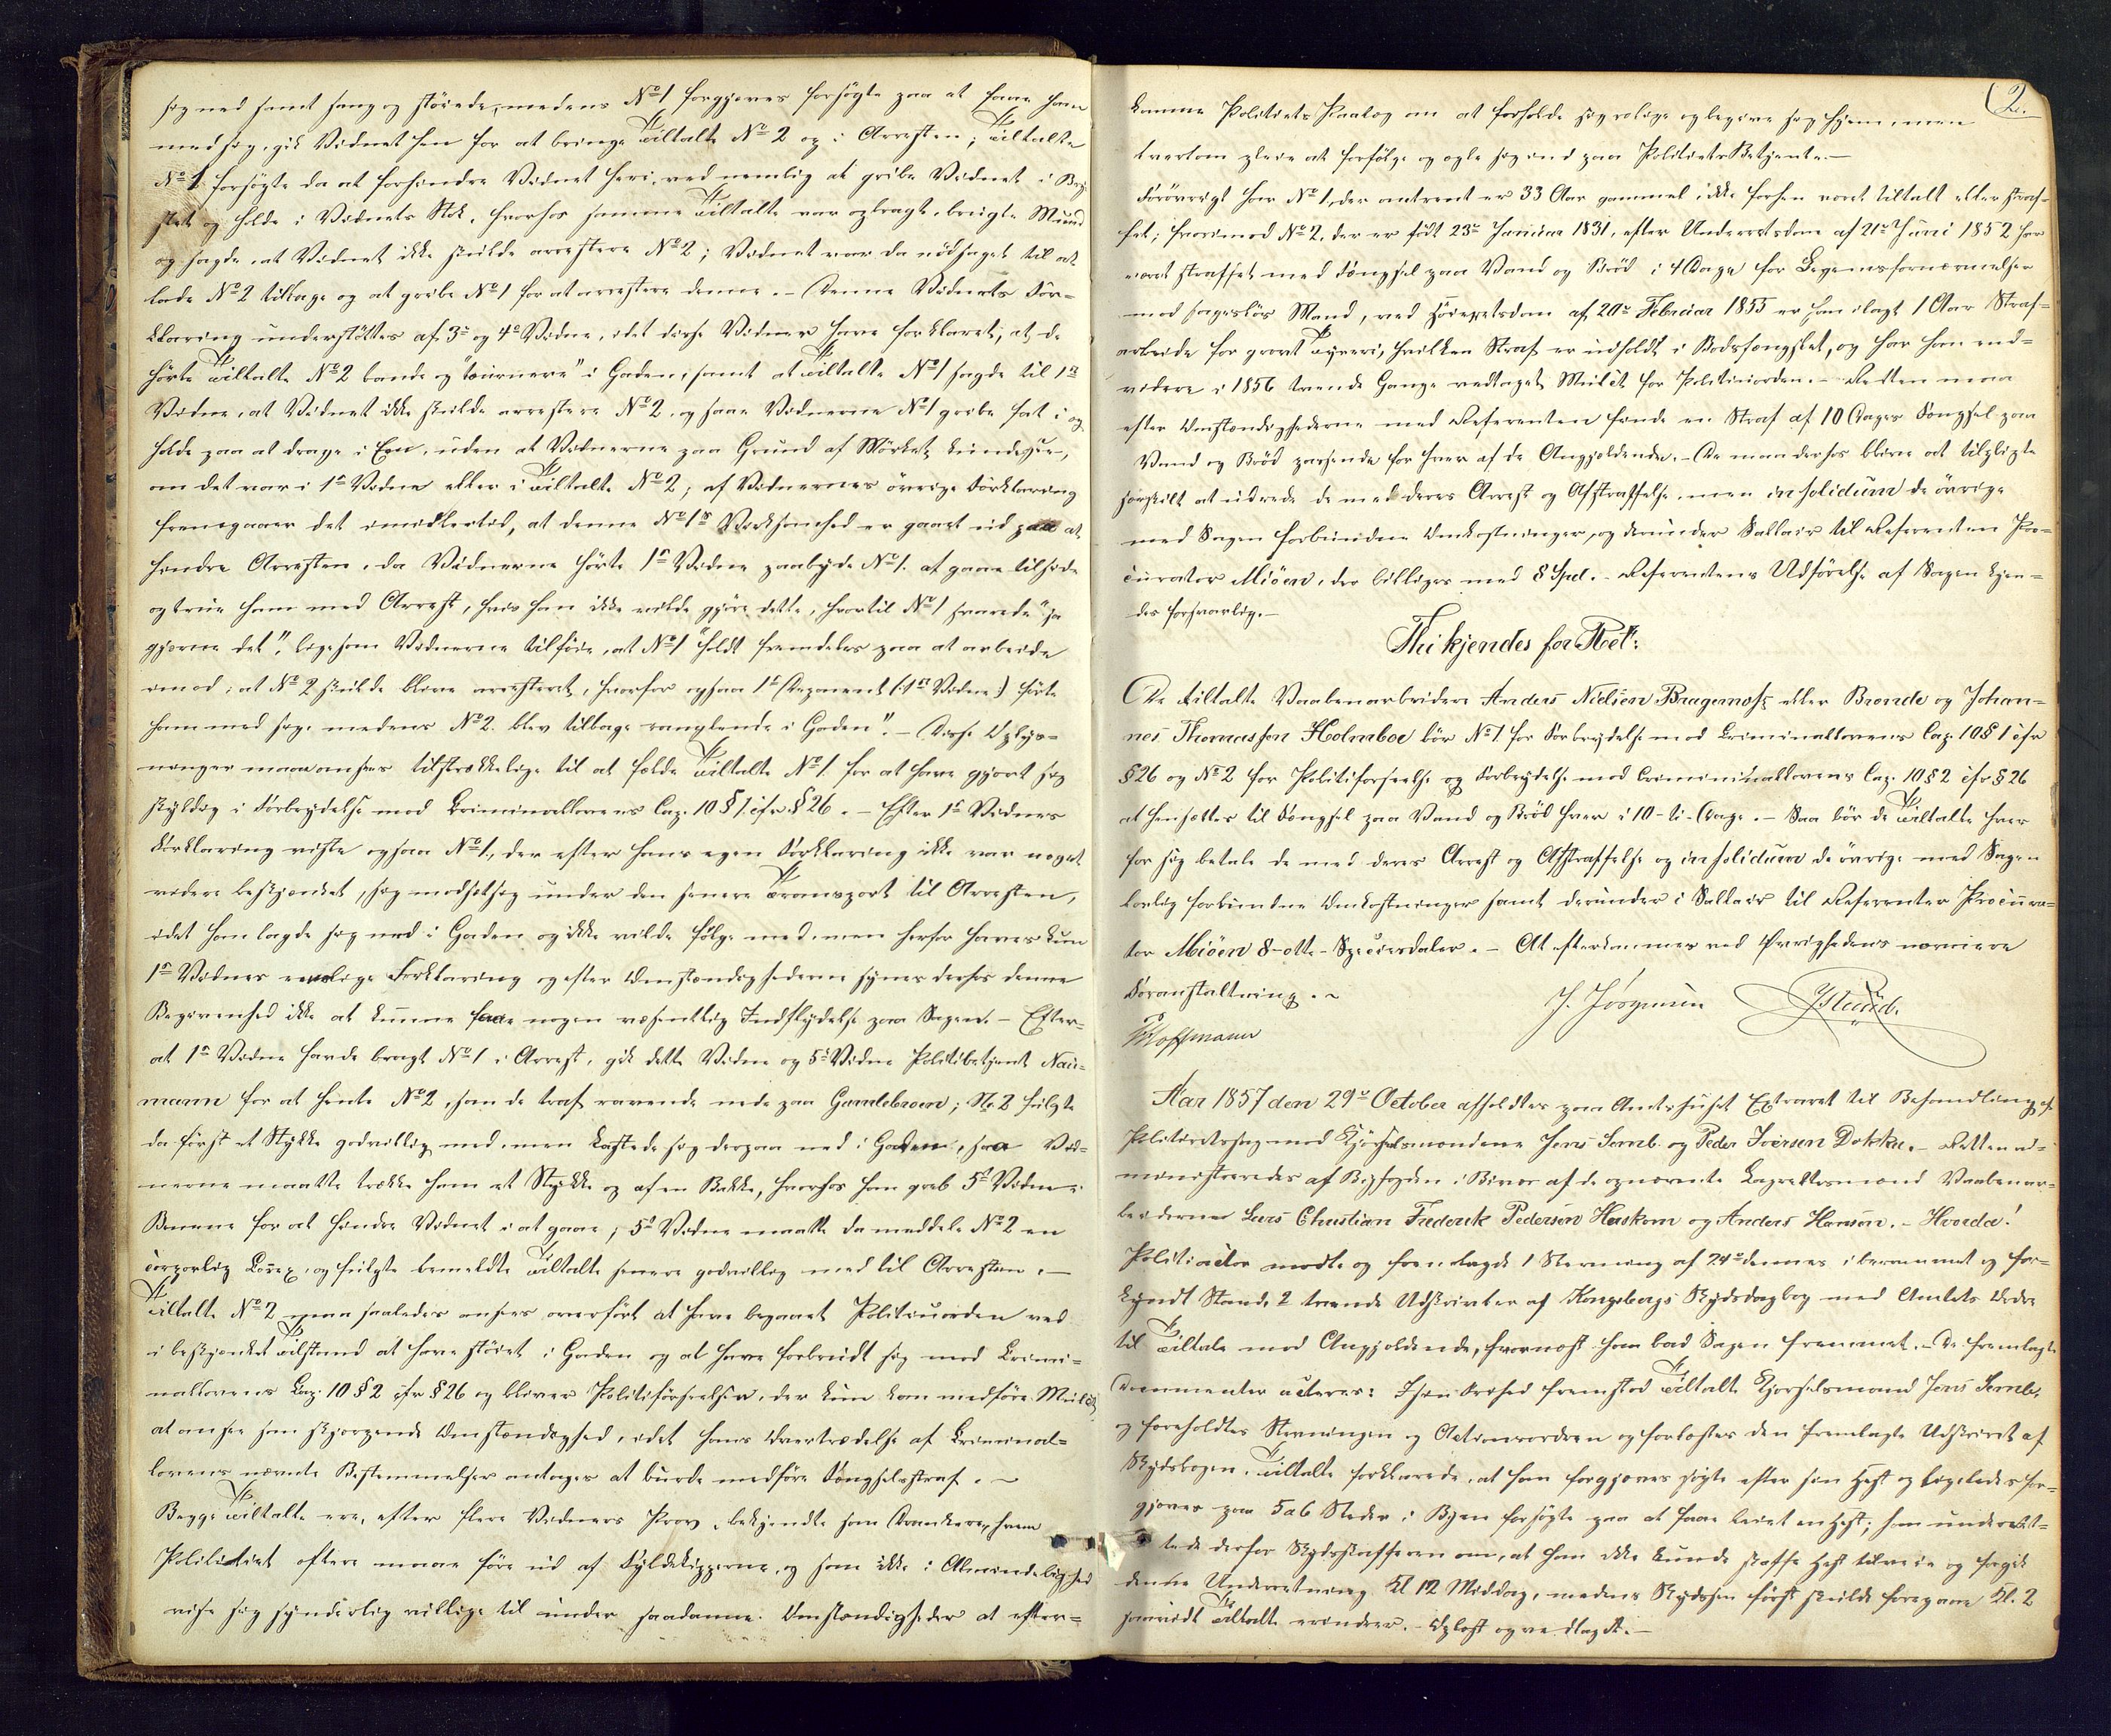 sig ned samt sang og støiede, medens No 1 forgjæves forsøgte paa at faae ham
med sig, gik Vidnet hen for at bringe Tiltalte No 2 op i Arresten; Tiltalte
No 1 forsøgte da at forhindre Vidnet heri, ved nemlig at gribe Vidnet i Bry-
stet og holde i Vidnets Stok, hvorhos samme Tiltalte var opbragt, brugte Mund
og sagde, at Vidnet ikke skulde arrestere No 2; Vidnet var da nødsaget til at
lade No 2 tilbage og at gribe No 1 for at arrestere denne. – Denne Vidnets For-
klaring understøttes af 3die og 4de Vidne, idet disse Vidner have forklaret, at de
hørte Tiltalte No 2 bande og "tournere" i Gaden, samt at Tiltalte No 1 sagde til 1ste
Vidne, at Vidnet ikke skulde arrestere No 2, og saae Vidnerne No 1 gribe fat i og
holde paa at drage i Een, uden at Vidnerne paa Grund af Mørket kunde see,
om det var i 1ste Vidne eller i Tiltalte No 2; af Vidnernes øvrige Forklaring
fremgaaer det imidlertid, at denne No 1s Virksomhed er gaaet ud paa at
hindre Arresten, da Vidnerne hørte 1ste Vidne paabyde No 1 at gaae tilside
og true ham med Arrest, hvis han ikke vilde gjøre dette, hvortil No 1 svarede "ja
gjerne det", ligesom Vidnerne tilføie, at No 1 "holdt fremdeles paa at arbeide
imod, at No 2 skulde blive arresteret, hvorfor ogsaa 1ste Deponent (: 1ste Vidne :) førte
ham med sig, medens No 2 blev tilbage ranglende i Gaden". – Disse Oplys-
ninger maae ansees tilstrækkelige til at fælde Tiltalte No 1 for at have gjort sig
skyldig i Forbrydelse mod Criminallovens Cap. 10 § 1 cfr. § 26. – Efter 1ste Vidnes
Forklaring viste ogsaa No 1, der efter hans egen Forklaring ikke var noget
videre beskjænket, sig modsætsig under den senere Transport til Arresten,
idet han lagde sig ned i Gaden og ikke vilde følge med, men herfor haves kun
1ste Vidnes eenslige Forklaring og efter Omstændighederne synes derhos denne
Begivenhed ikke at kunne faae nogen væsentlig Indflydelse paa Sagen. – Efter-
at 1ste Vidne havde bragt No 1 i Arrest, gik dette Vidne og 5te Vidne Politibetjent Nau-
mann for at hente No 2, som de traf ravende nede paa Gamlebroen; No 2 fulgte
da først et Stykke godvillig med, men kastede sig derpaa ned i Gaden, saa Vid-
nerne maatte trække ham et Stykke op af en Bakke, hvorhos han greb 5te Vidne i
Benene for at hindre Vidnet i at gaae; 5te Vidne maatte da meddele No 2 en
corporlig Corex, og fulgte bemeldte Tiltalte senere godvillig med til Arresten. –
Tiltalte No 2 maa saaledes ansees overført at have begaaet Politiuorden ved
i beskjænket Tilstand at have støiet i Gaden og at have forbrudt sig mod Crimi-
nallovens Cap. 10 § 2 cfr § 26 og bliver Politiforseelsen, der kun kan medføre Mulct,
at ansee som skjærpende Omstændighed, idet hans Overtrædelse af Criminal-
lovens nævnte Bestemmelser antages at burde medføre Fængselsstraf. –
Begge Tiltalte ere, efter flere Vidners Prov, bekjendte som Drankere, hvem
Politiet oftere maae føre ud af Fyldekipperne, og som ikke i Almindelighed
vise sig synderlig villige til under saadanne Omstændigheder at efter-
2.
komme Politiets Paalæg om at forholde sig rolige og begive sig hjem, men
tvertom pleie at forfølge og egle sig ind paa Politiets Betjente. –
Forøvrigt har No 1, der omtrent er 33 Aar gammel, ikke forhen været tiltalt eller straf-
fet; hvorimod No 2, der er født 23de Januar 1831, efter Underretsdom af 21de Juni 1852 har
været straffet med Fængsel paa Vand og Brød i 4 Dage for Legemsfornærmelser
mod sagesløs Mand, ved Høiesteretsdom af 20de Februar 1855 er han ilagt 1 Aar Straf-
arbeide for grovt Tyveri, hvilken Straf er udholdt i Bodsfængslet, og har han end-
videre i 1856 tvende Gange vedtaget Mulct for Politiuorden. – Retten maa
efter Omstændighederne med Referenten finde en Straf af 10 Dages Fængsel paa
Vand og Brød passende for hver af de Angjældende. – De maa derhos blive at tilpligte
særskilt at udrede de med deres Arrest og Afstraffelse, men in solidum de øvrige
med Sagen forbundne Omkostninger, og derunder Sallair til Referenten Pro-
curator Miøen, der billiges med 8 Spd. – Referentens Udførelse af Sagen kjen-
des forsvarlig. –
Thi kjendes for Ret:
De tiltalte Vaabenarbeidere Anders Nielsen Bragernæs eller Brende og Johan-
nes Thomassen Holmboe bør No 1 for Forbrydelse mod Criminallovens Cap. 10 § 1 cfr
§ 26 og No 2 for Politiforseelse og Forbrydelse mod Criminallovens Cap. 10 § 2 cfr. § 26
at hensættes til Fængsel paa Vand og Brød hver i 10 - ti - Dage. – Saa bør de Tiltalte hver
for sig betale de med deres Arrest og Afstraffelse og in solidum de øvrige med Sagen
lovlig forbundne Omkostninger samt derunder i Sallair til Referenten Procura-
tor Miøen 8 - otte - Speciesdaler. – At efterkommes ved Øvrighedens nærmere
Foranstaltning. –
J. Jørgensen
Hoffmann
Aar 1857 den 29de October afholdtes paa Amtshuset Extraret til Behandling af
Politiretssag mod Kjørselsmændene Jens Semb og Peder Iversen Dokka. – Retten ad-
ministreredes af Byfogden i Bivær af de opnævnte Lagrettesmænd Vaabenar-
beiderne Lars Christian Frederik Pedersen Heskem og Anders Hansen. – Hvorda!
Politiactor mødte og fremlagde 1 Stevning af 24de dennes i beramnet og for-
kyndt Stand, 2 tvende Udskrivter af Kongsbergs Skydsdagbog med Amtets Ordre
til Tiltale mod Angjældende, hvornæst han bad Sagen fremmet. – De fremlagte
Documenter acteres: I sin Frihed fremstod Tiltalte Kjørselsmand Jens Semb,
og foreholdtes Stevningen og Actionsordren og forlæstes den fremlagte Udskrivt af
Skydsbogen. Tiltalte forklarede, at han forgjæves søgte efter sin Hest og ligeledes for-
gjæves paa 5 a 6 Steder i Byen forsøgte paa at faae leiet en Hest; han underret-
tede derfor Skydsskafferen om, at han ikke kunde skaffe Hest tilveie og afgik
denne Underretning Kl 12 Middag, medens Skydsen først skulde foregaae Kl. 2
saavidt Tiltalte erindrer. – Oplæst og vedtaget. –